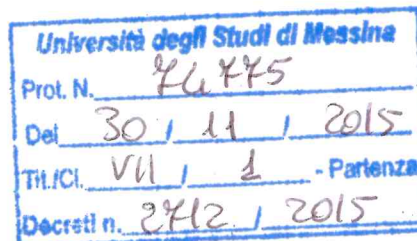 Università degli Studi di Messina
Prot. N. 74775
Del 30 / 11 / 2015
Tit./Cl. VII / 1 - Partenza
Decreti n. 2712 / 2015